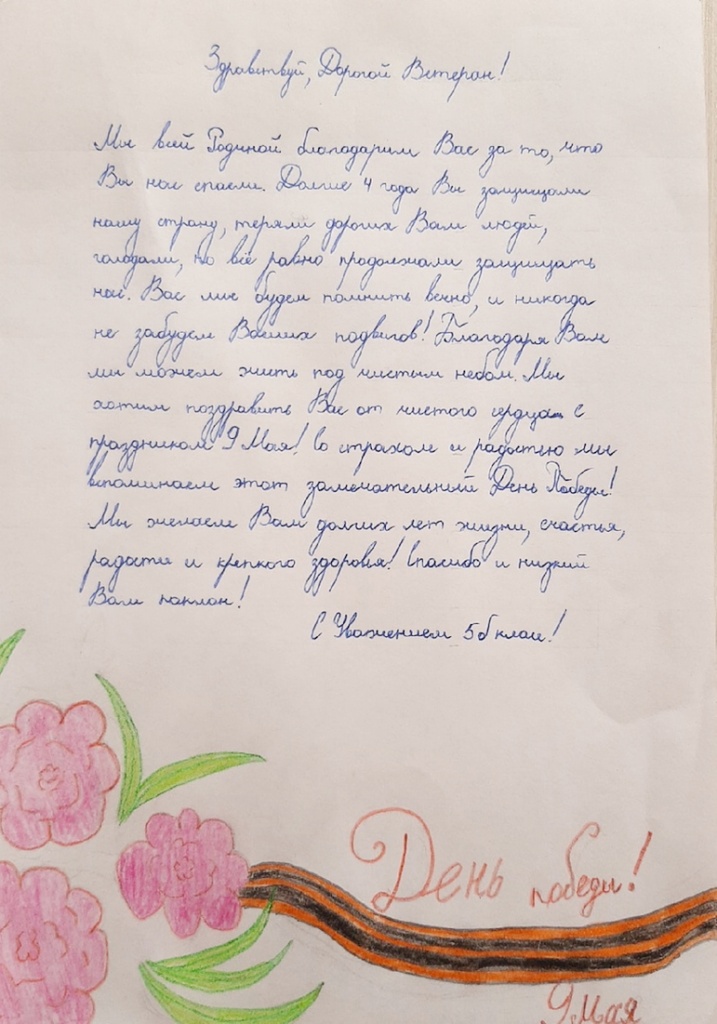 Здравствуй, Дорогой Ветеран!
Мы всей Родиной благодарим Вас за то, что
Вы нас спасли. Долгие 4 года Вы защищали
нашу страну, теряли дорогих Вам людей,
голодали, но всё равно продолжали защищать
нас. Вас мы будем помнить вечно, и никогда
не забудем Ваших подвигов! Благодаря Вам
мы можем жить под чистым небом. Мы
хотим поздравить Вас от чистого сердца с
праздником 9 Мая! Со страхом и радостью мы
вспоминаем этот замечательный День Победы!
Мы желаем Вам долгих лет жизни, счастья,
радости и крепкого здоровья! Спасибо и низкий
Вам поклон!
С Уважением 5б класс!
День победы!
9 Мая